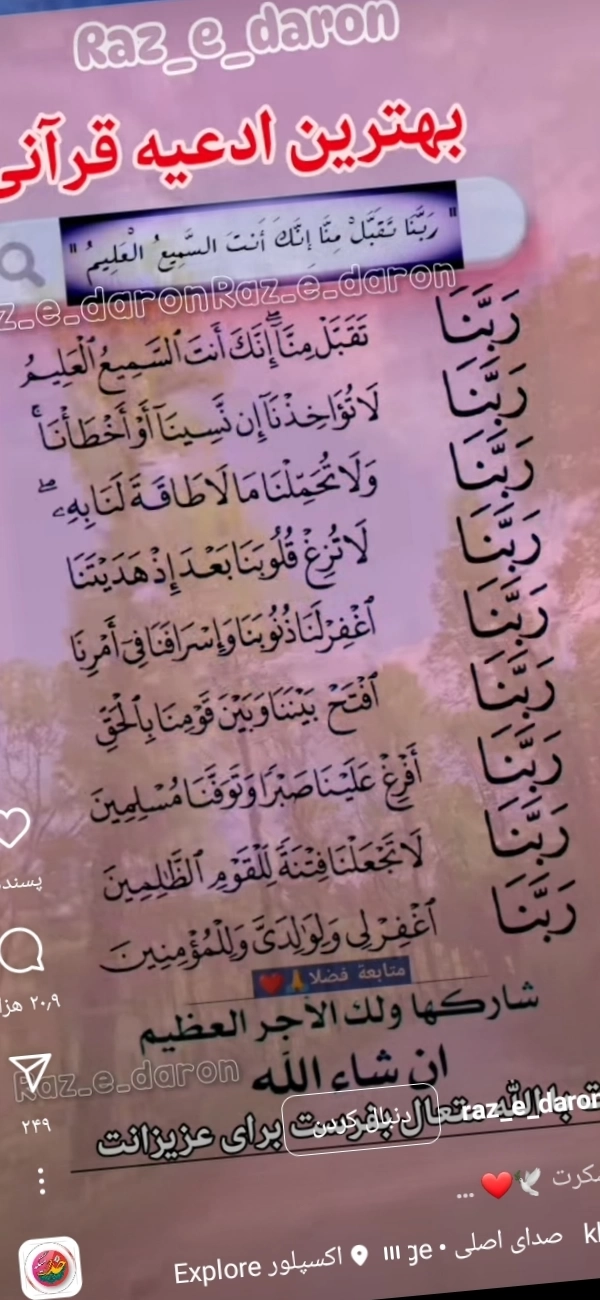 Raz_e_daron
بهترین ادعیه قرآنی
" رَبَّنَا تَقَبَّلْ مِنَّا إِنَّكَ أَنتَ السَّمِيعُ الْعَلِيمُ "
z_e_daron Raz_e_daron
رَبَّنَا تَقَبَّلْ مِنَّآ ۖ إِنَّكَ أَنتَ ٱلسَّمِيعُ ٱلْعَلِيمُ
رَبَّنَا لَا تُؤَاخِذْنَآ إِن نَّسِينَآ أَوْ أَخْطَأْنَا ۚ
رَبَّنَا وَلَا تُحَمِّلْنَا مَا لَا طَاقَةَ لَنَا بِهِۦ ۖ
رَبَّنَا لَا تُزِغْ قُلُوبَنَا بَعْدَ إِذْ هَدَيْتَنَا
رَبَّنَا ٱغْفِرْ لَنَا ذُنُوبَنَا وَإِسْرَافَنَا فِىٓ أَمْرِنَا
رَبَّنَا ٱفْتَحْ بَيْنَنَا وَبَيْنَ قَوْمِنَا بِٱلْحَقِّ
رَبَّنَا أَفْرِغْ عَلَيْنَا صَبْرًا وَتَوَفَّنَا مُسْلِمِينَ
رَبَّنَا لَا تَجْعَلْنَا فِتْنَةً لِّلْقَوْمِ ٱلظَّٰلِمِينَ
رَبَّنَا ٱغْفِرْ لِى وَلِوَٰلِدَىَّ وَلِلْمُؤْمِنِينَ
متابعة فضلا🙏❤️
شاركها ولك الأجر العظيم
ان شاء الله
Raz_e_daron
۲۰٫۹
۲۴۹
با الله متعال بفرست برای عزیزانت
raz_e_daron
دنبال کردن
... ❤️🕊
صدای اصلی •
اکسپلور Explore